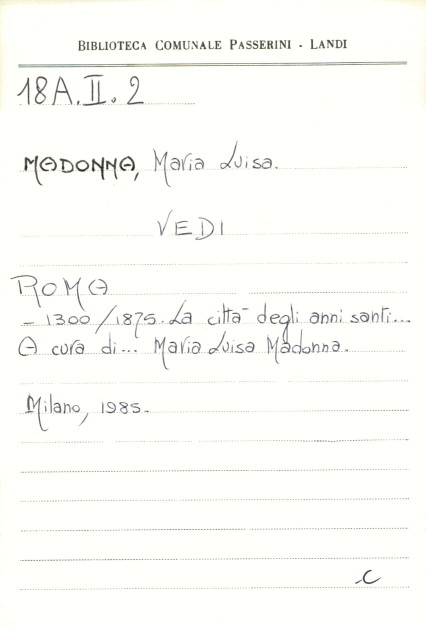 BIBLIOTECA COMUNALE PASSERINI - LANDI
18A.II.2
MADONNA, Maria Luisa.
VEDI
ROMA
- 1300/1875. La città degli anni santi...
A cura di... Maria Luisa Madonna.
Milano, 1985.
C